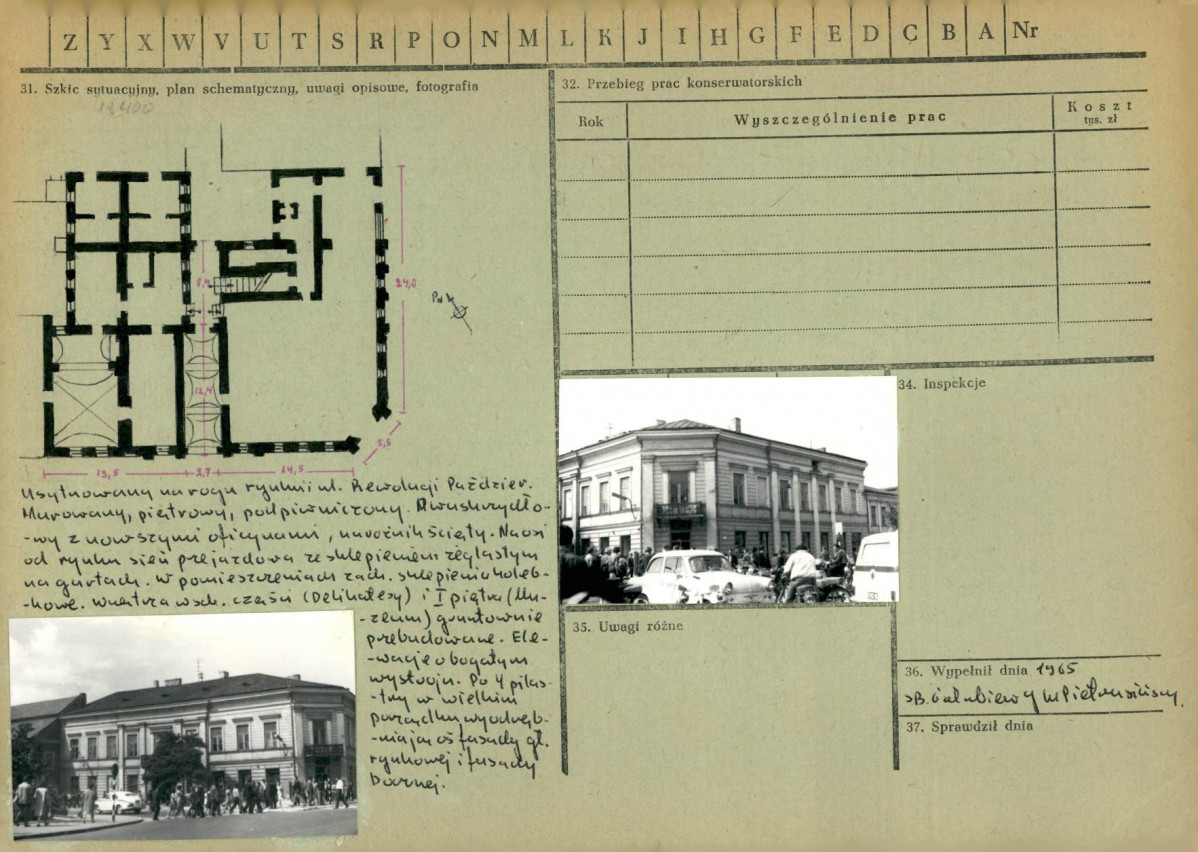 Z Y X W V U T S R P O N M L K J I H G F E D C B A Nr
31. Szkic sytuacyjny, plan schematyczny, uwagi opisowe, fotografia
8,4
24,0
PN
12,4
5,5
13,5 2,7 14,5
Usytuowany na rogu rynku i ul. Rewolucji Paździer.
Murowany, piętrowy, podpiwniczony. Dwuskrzydło-
-wy z nowszymi oficynami, narożnik ścięty. Na osi
od rynku sień przejazdowa ze sklepieniem żeglastym
na gurtach. W pomieszczeniach zach. sklepienia koleb-
-kowe. Wnętrza wsch. części (Delikatesy) i I piętra (Mu-
-zeum) gruntownie
przebudowane. Ele-
-wacje o bogatym
wystroju. Po 4 pilas-
-try w wielkim
porządku wyodręb-
-niają oś fasady gł.
rynkowej i fasady
bocznej.
32. Przebieg prac konserwatorskich
Rok Wyszczególnienie prac Koszt
tys. zł
34. Inspekcje
35. Uwagi różne
36. Wypełnił dnia 1965
37. Sprawdził dnia